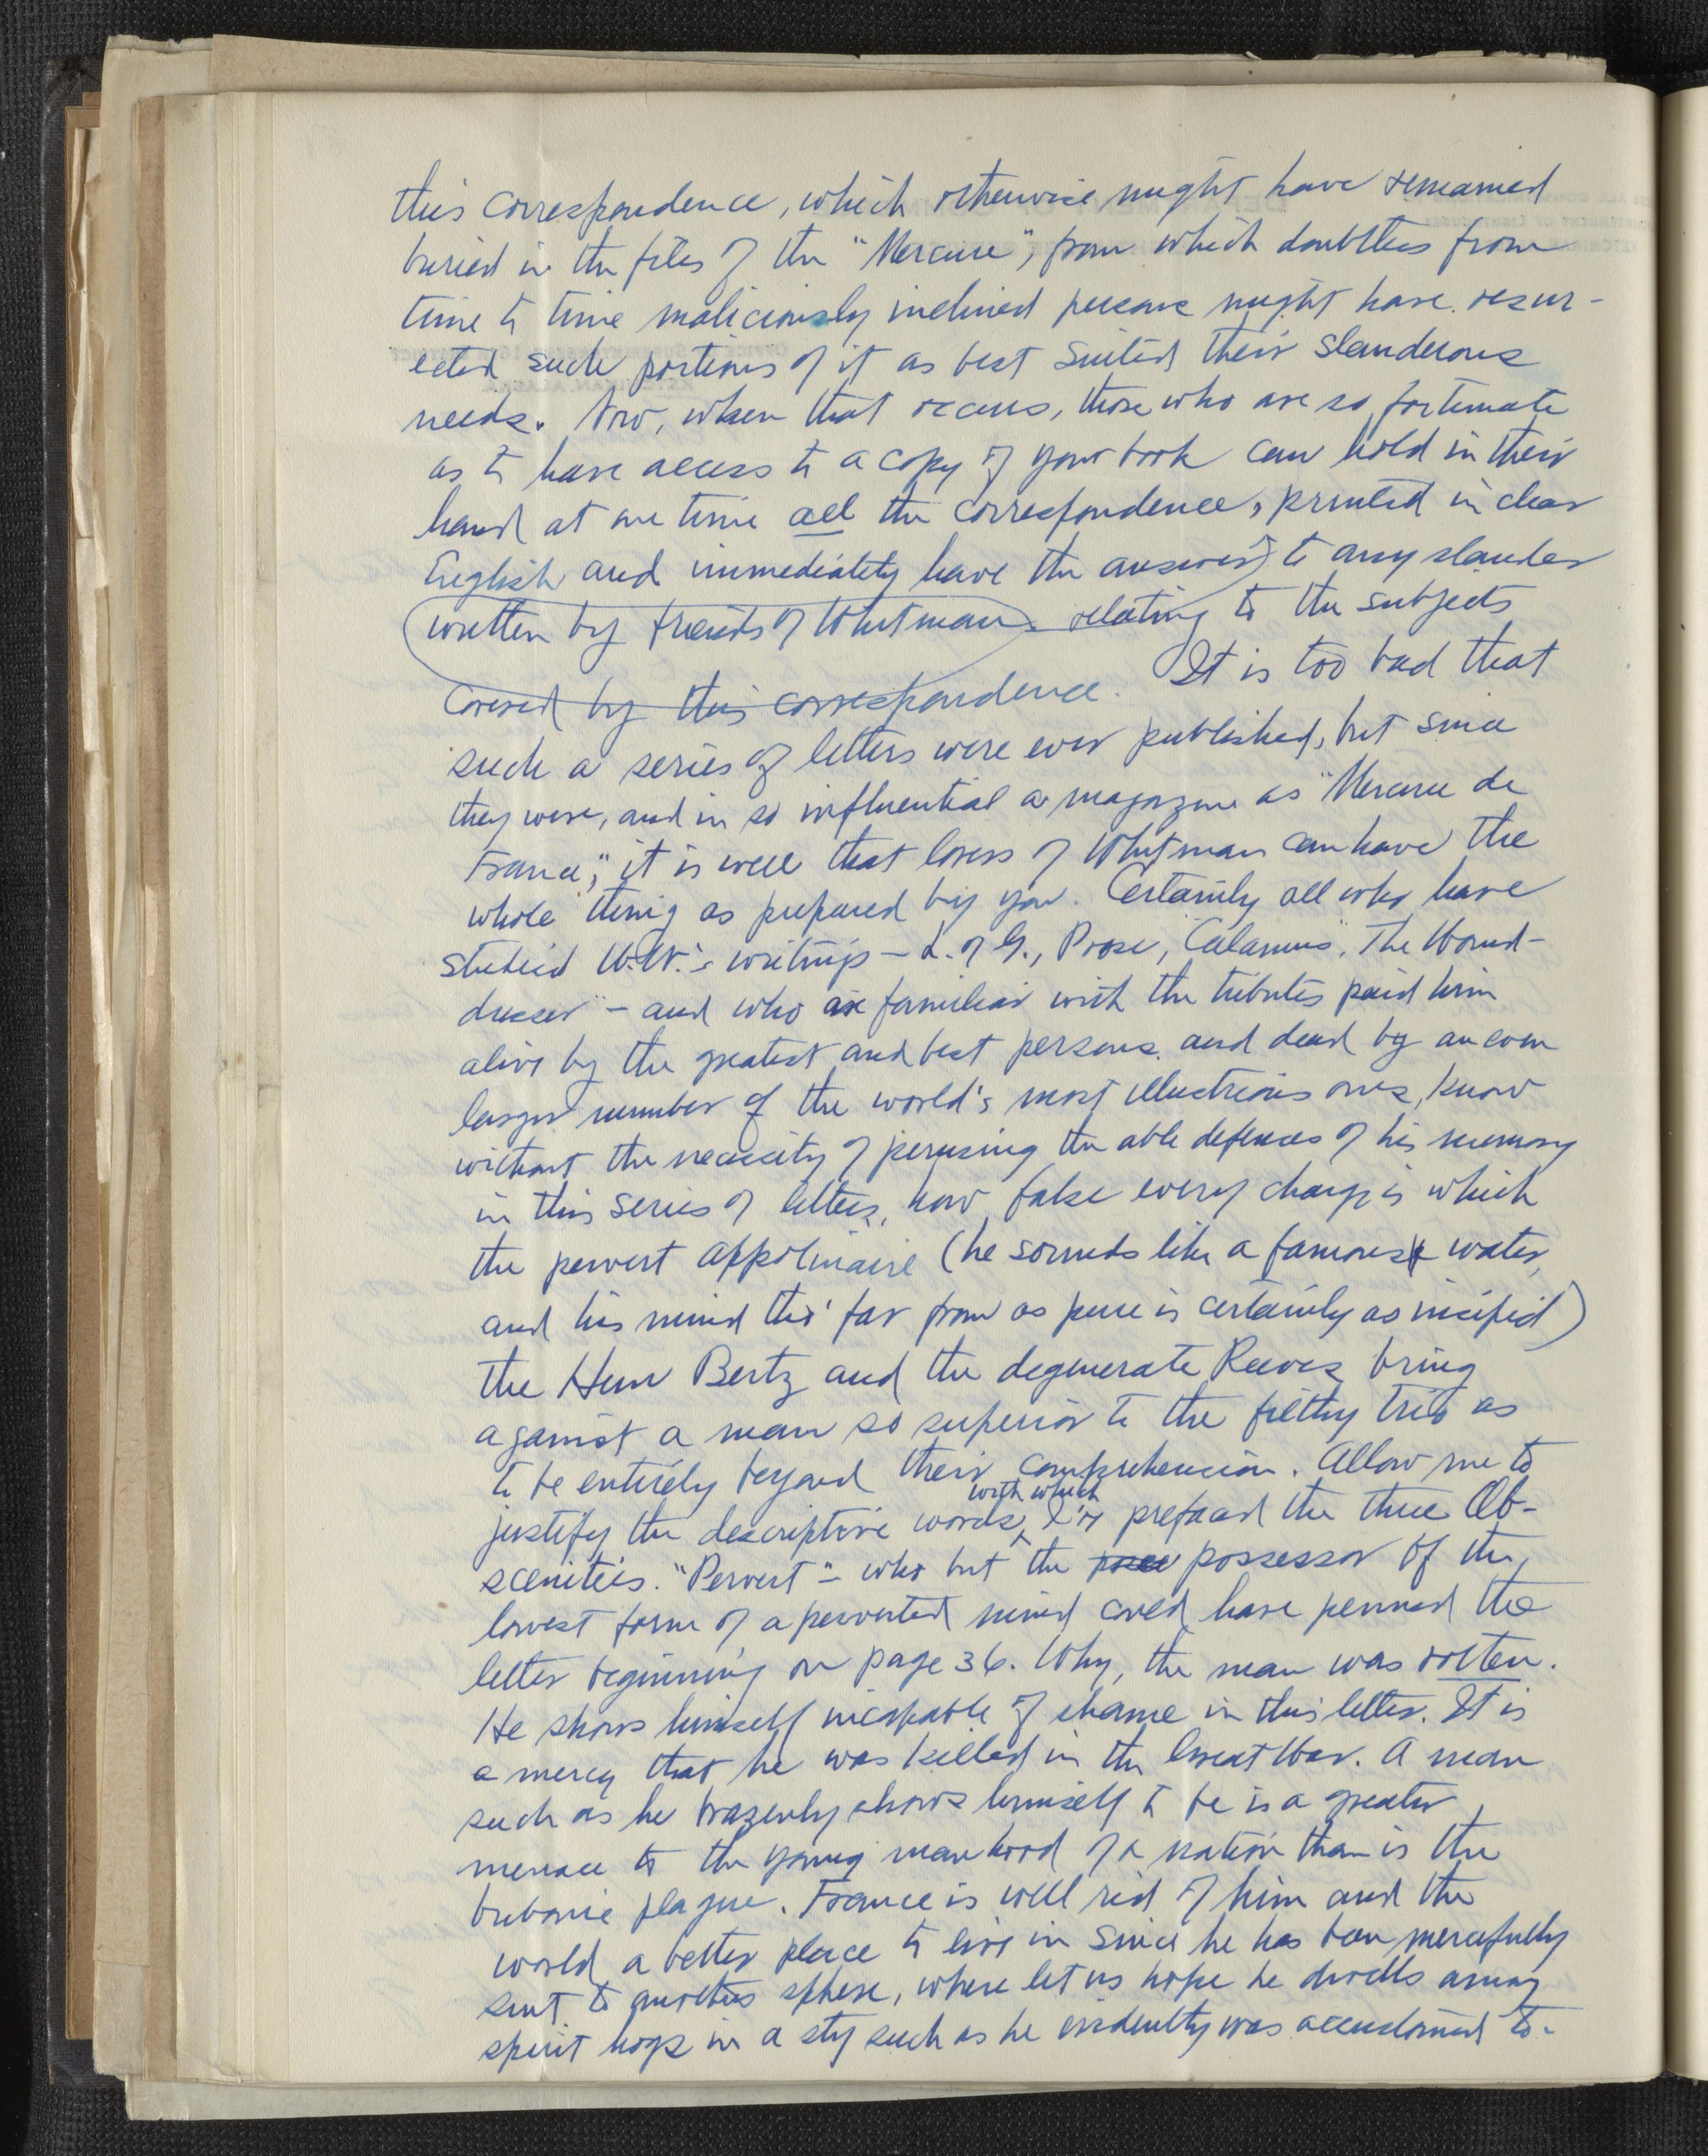 this correspondence, which otherwise might have remained
buried in the files of the "Mercure", from which doubtless from
time to time maliciously inclined persons might have resur-
ected such portions of it as best suited their slanderous
needs. Now, when that occurs, those who are so fortunate
as to have access to a copy of your book can hold in their
hand at one time all the correspondence, printed in clear
English and immediately have the answers to any slander
written by friends of Whitman relating to the subjects
covered by this correspondence. It is too bad that
such a series of letters were ever published, but since
they were, and in so influential a magazine as "Mercure de
France," it is well that lovers of Whitman can have the
whole thing as prepared by you. Certainly all who have
studied W.W.'s writings – L. of G., Prose, "Calamus", The Wound-
dresser" – and who are familiar with the tributes paid him
alive by the greatest and best persons and dead by an even
larger number of the world's most illustrious ones, know
without the necessity of perusing the able defences of his memory
in this series of letters, how false every charge is which
the pervert Appolinaire (he sounds like a famous water,
and his mind tho' far from as pure is certainly as insipid)
the Hun Bertz and the degenerate Reeves bring
against a man so superior to the filthy trio as
to be entirely beyond their comprehension. Allow me to
justify the descriptive words with which I've prefaced the three Ob-
scenities. "Pervert" – who but the possessor of the
lowest form of a perverted mind could have penned the
letter beginning on page 36. Why, the man was rotten.
He shows himself incapable of shame in this letter. It is
a mercy that he was killed in the Great War. A man
such as he brazenly shows himself to be is a greater
menace to the young manhood of a nation than is the
bubonic plague. France is well rid of him and the
world a better place to live in since he has been mercifully
sent to another sphere, where let us hope he dwells among
spirit hogs in a sty such as he evidently was accustomed to.